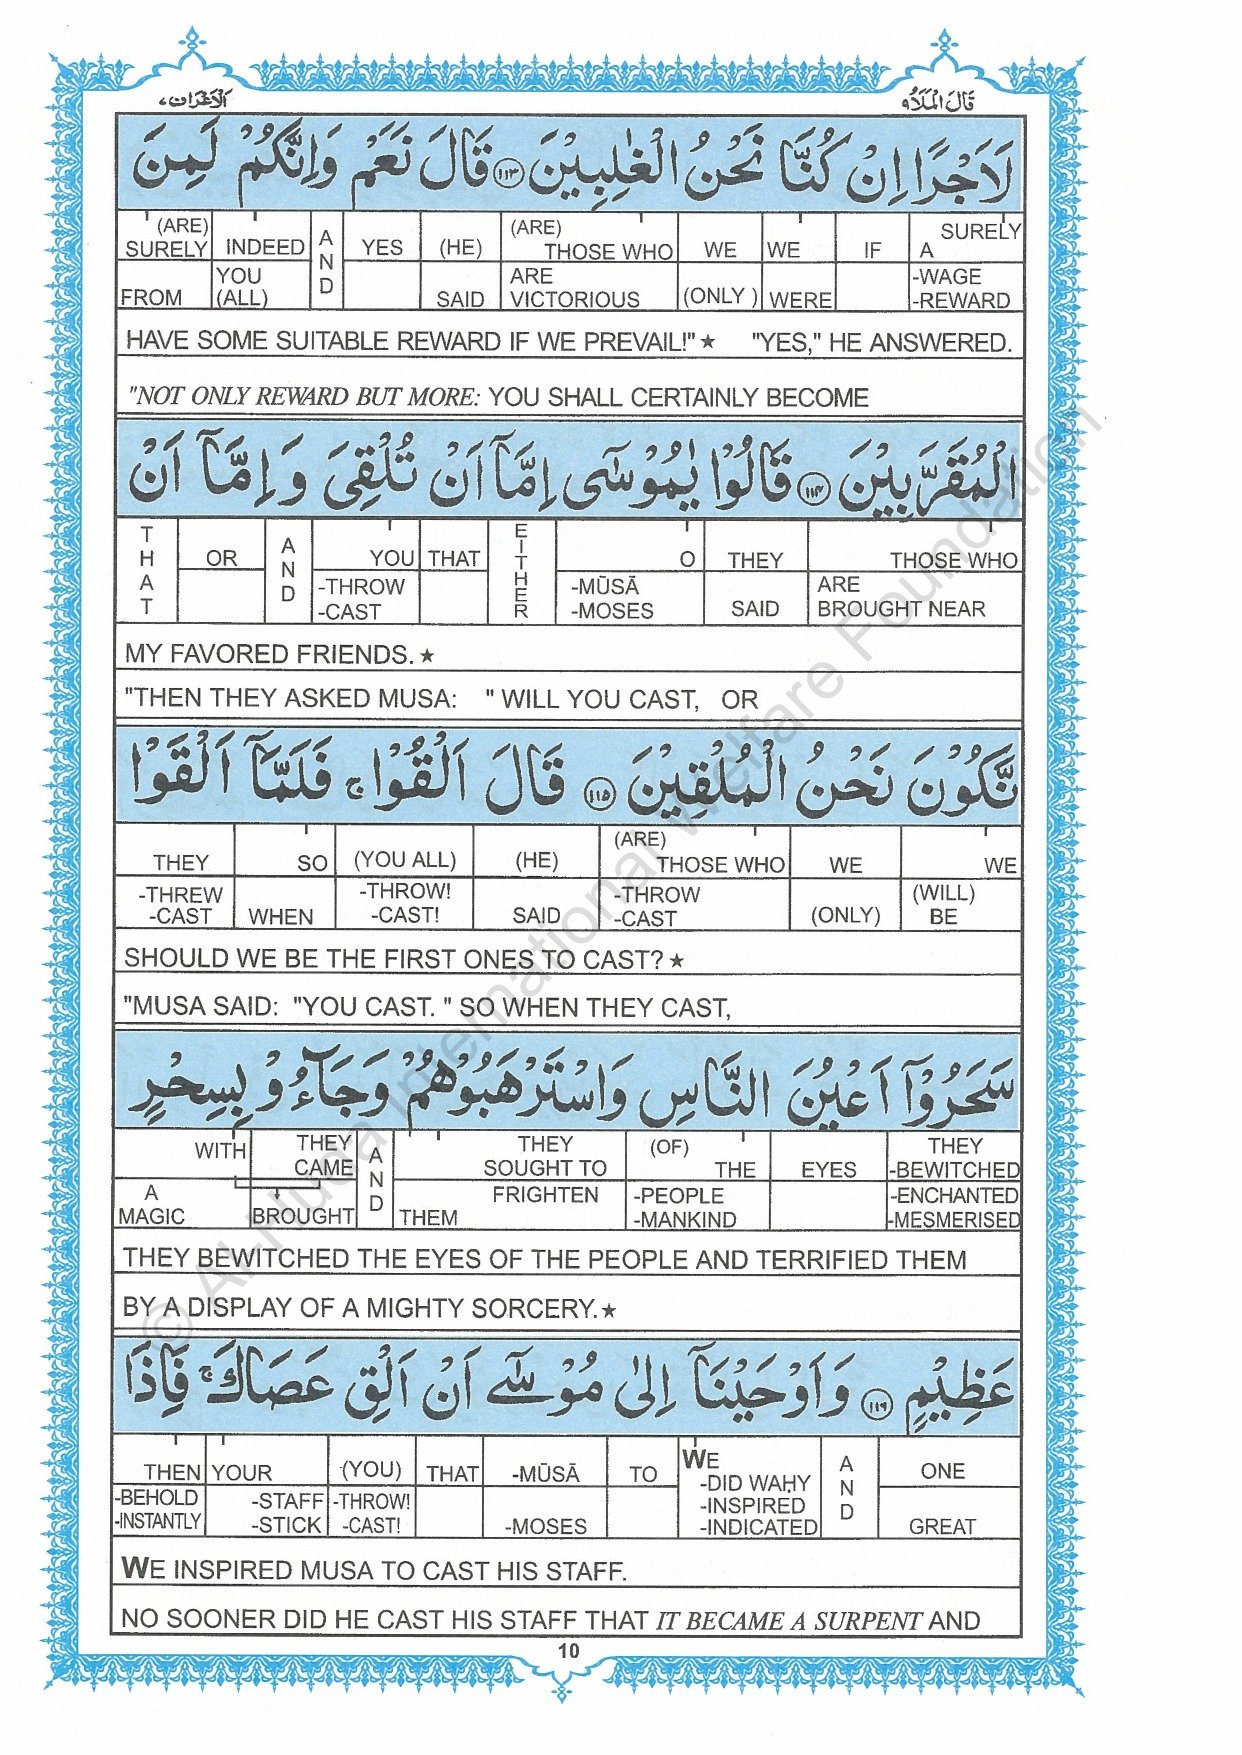 الاعراف ٧
قال الملا ٩
لَاَجْرًا اِنْ كُنَّا نَحْنُ الْغٰلِبِيْنَ ١١٣ قَالَ نَعَمْ وَاِنَّكُمْ لَمِنَ
(ARE) SURELY INDEED AND YES (HE) (ARE) THOSE WHO WE WE IF SURELY A
FROM YOU (ALL) SAID ARE VICTORIOUS (ONLY ) WERE -WAGE -REWARD
HAVE SOME SUITABLE REWARD IF WE PREVAIL!"★ "YES," HE ANSWERED.
"NOT ONLY REWARD BUT MORE: YOU SHALL CERTAINLY BECOME
الْمُقَرَّبِيْنَ ١١٤ قَالُوْا يٰمُوْسٰٓى اِمَّآ اَنْ تُلْقِىَ وَ اِمَّآ اَنْ
THAT OR AND YOU THAT EITHER O THEY THOSE WHO
-THROW -CAST -MŪSĀ -MOSES SAID ARE BROUGHT NEAR
MY FAVORED FRIENDS. ★
"THEN THEY ASKED MUSA: " WILL YOU CAST, OR
نَّكُوْنَ نَحْنُ الْمُلْقِيْنَ ١١٥ قَالَ اَلْقُوْا ۚ فَلَمَّآ اَلْقَوْا
THEY SO (YOU ALL) (HE) (ARE) THOSE WHO WE WE
-THREW -CAST WHEN -THROW! -CAST! SAID -THROW -CAST (ONLY) (WILL) BE
SHOULD WE BE THE FIRST ONES TO CAST? ★
"MUSA SAID: "YOU CAST. " SO WHEN THEY CAST,
سَحَرُوْٓا اَعْيُنَ النَّاسِ وَاسْتَرْهَبُوْهُمْ وَجَآءُوْ بِسِحْرٍ
WITH THEY CAME AND THEY SOUGHT TO (OF) THE EYES THEY -BEWITCHED
A MAGIC BROUGHT THEM FRIGHTEN -PEOPLE -MANKIND -ENCHANTED -MESMERISED
THEY BEWITCHED THE EYES OF THE PEOPLE AND TERRIFIED THEM
BY A DISPLAY OF A MIGHTY SORCERY.★
عَظِيْمٍ ١١٦ وَاَوْحَيْنَآ اِلٰى مُوْسٰٓى اَنْ اَلْقِ عَصَاكَ ۚ فَاِذَا
THEN YOUR (YOU) THAT -MŪSĀ TO WE -DID WAḤY -INSPIRED -INDICATED AND ONE
-BEHOLD -INSTANTLY -STAFF -STICK -THROW! -CAST! -MOSES GREAT
WE INSPIRED MUSA TO CAST HIS STAFF.
NO SOONER DID HE CAST HIS STAFF THAT IT BECAME A SURPENT AND
10
© Al-Huda International Welfare Foundation